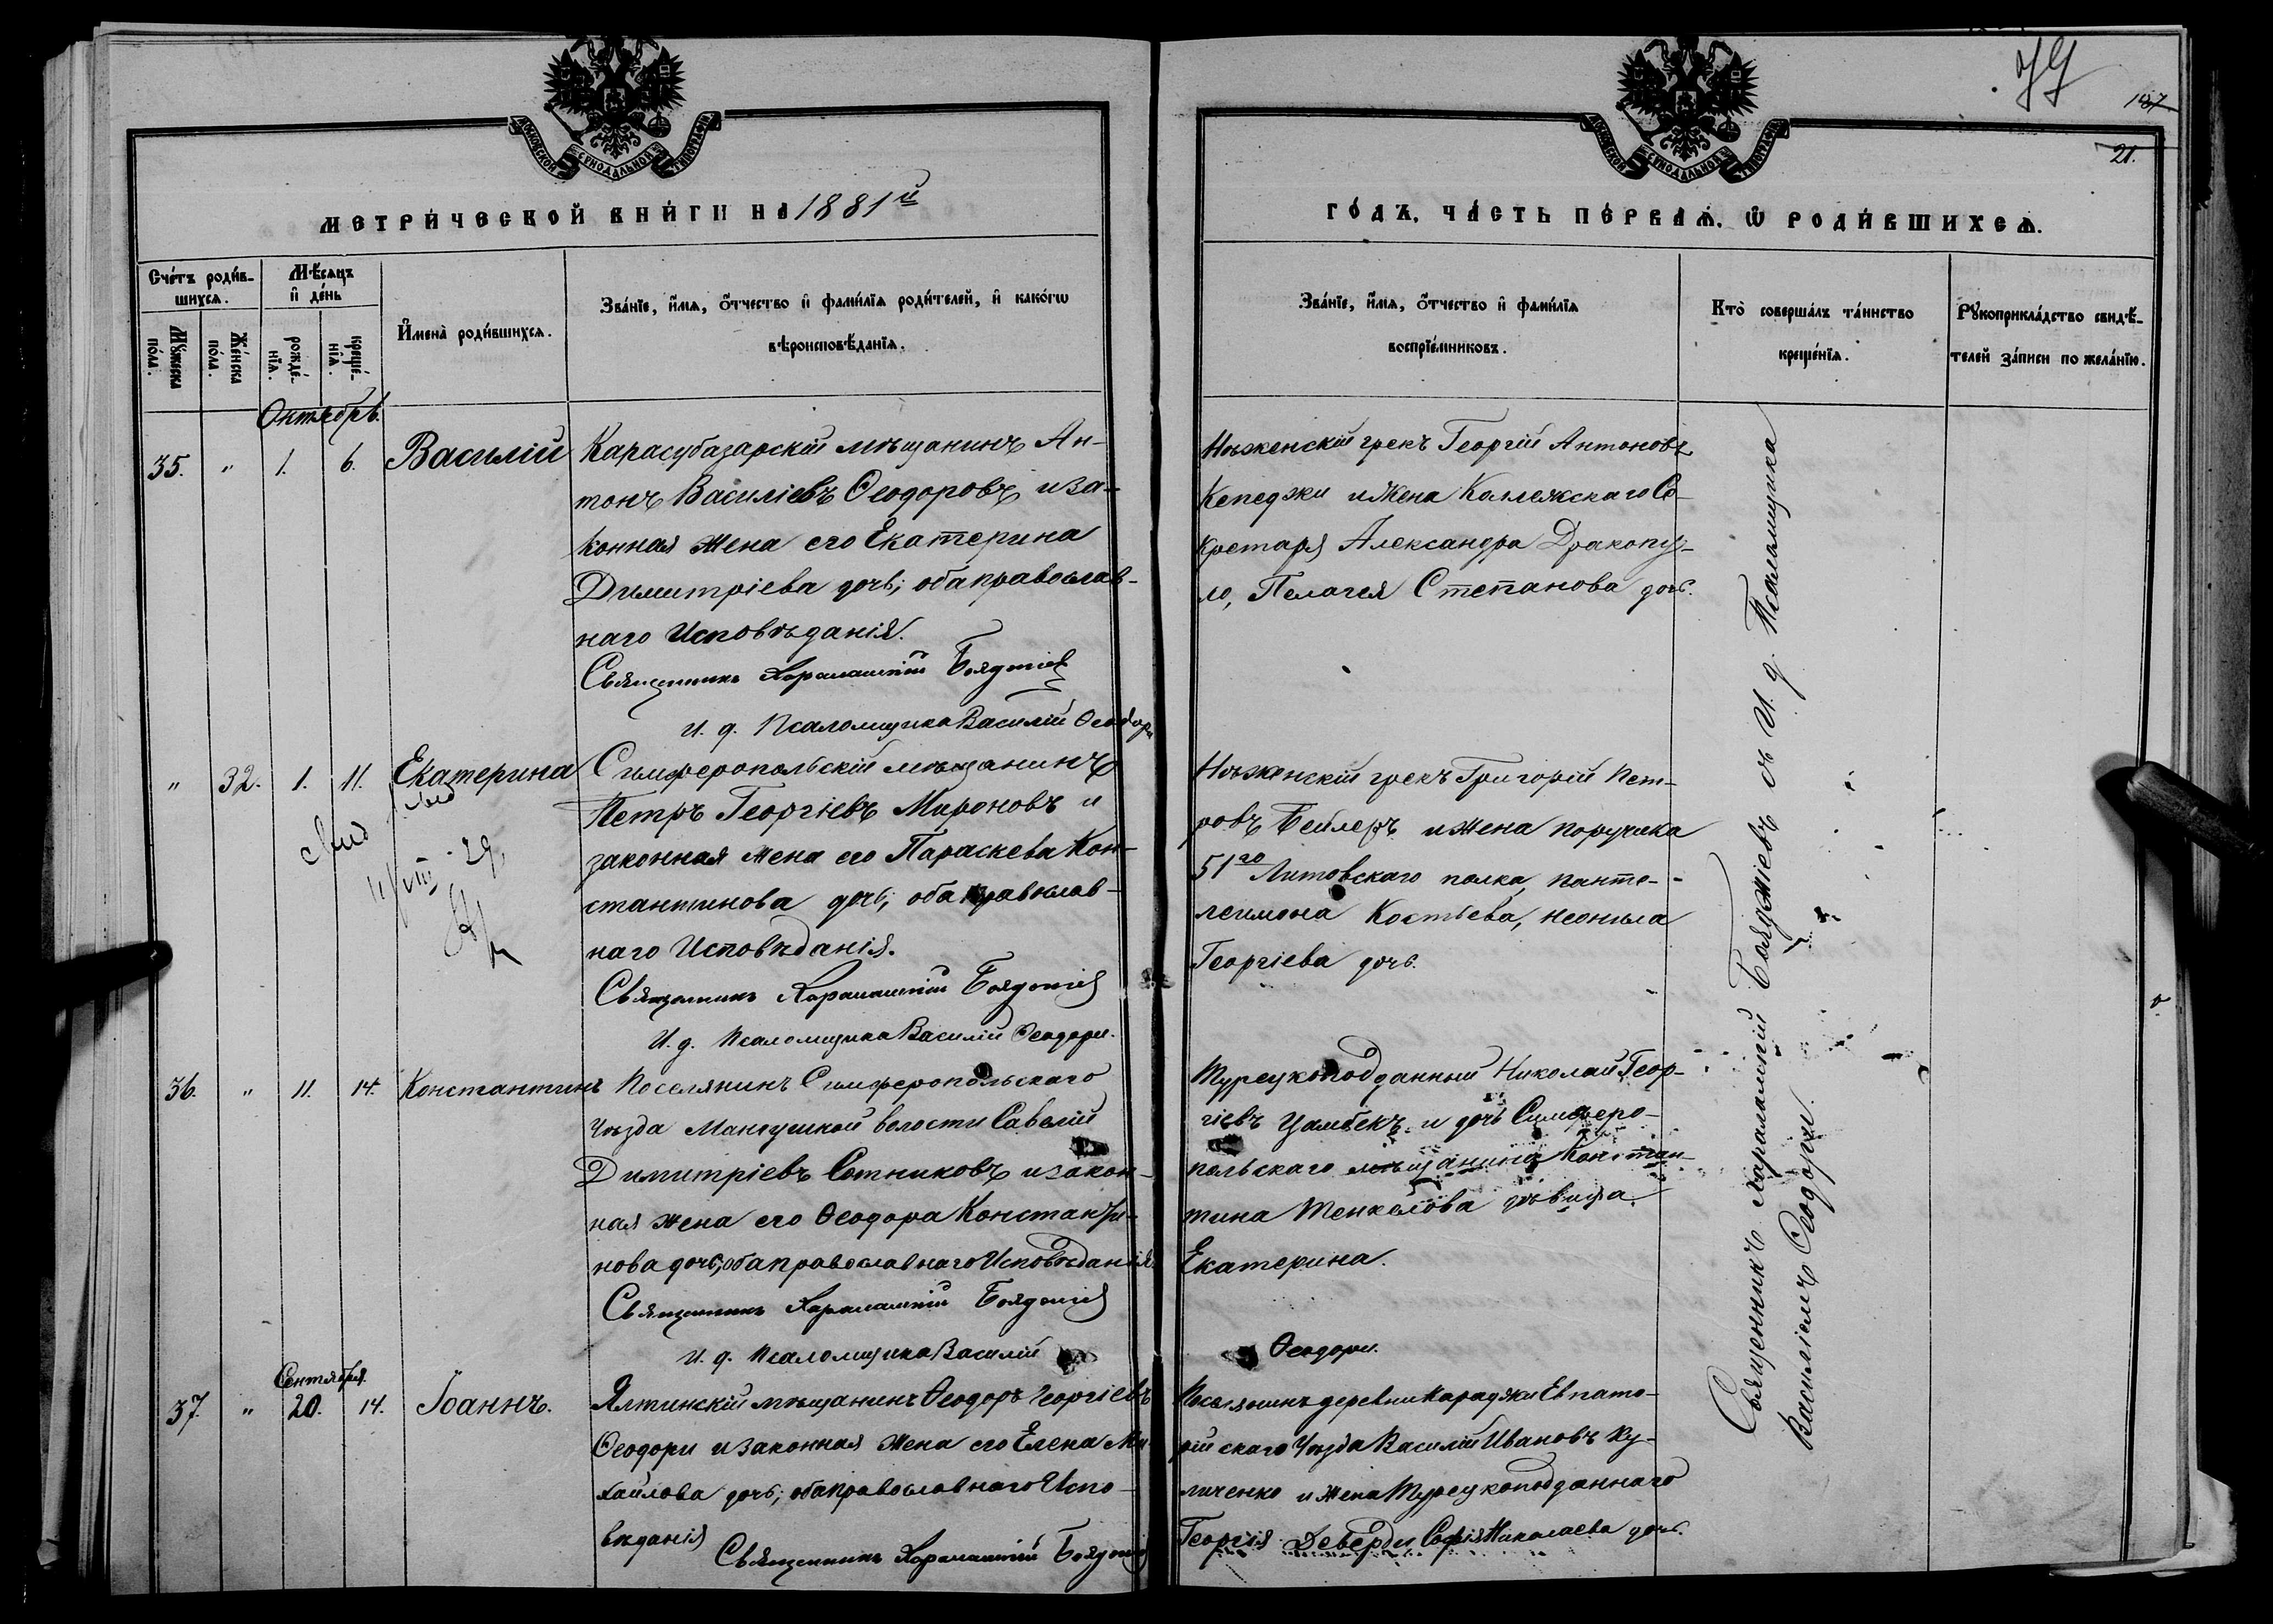 79
187
21.
МОСКОВСКОЙ СѴНОДАЛЬНОЙ ТИПОГРАФІИ
МОСКОВСКОЙ СѴНОДАЛЬНОЙ ТИПОГРАФІИ
МЕТРИ́ЧЕСКОЙ КНИ́ГИ НА 1881й
ГО́ДЪ, ЧА́СТЬ ПЕ́РВАѦ, Ѡ РОДИ́ВШИХСѦ.
Сче́тъ роди́в-
шихсѧ.
Мѣ́сѧцъ
и҆ де́нь
Мꙋ́жеска по́ла.
Же́нска по́ла.
рожде́-нїѧ.
креще́-нїѧ.
И҆мена̀ роди́вшихсѧ.
Зва́нїе, и҆́мѧ, о҆́тчество и҆ фами́лїѧ роди́телей, и҆ како́гѡ
вѣроисповѣ́данїѧ.
Зва́нїе, и҆́мѧ, о҆́тчество и҆ фами́лїѧ
воспрїе́мниковъ.
Кто̀ соверша́лъ та́инство
креще́нїѧ.
Рꙋкоприкла́дство свидѣ́-
телей за́писи по жела́нїю.
Октябрь.
35. " 1. 6. Василій
Карасубазарскій мѣщанинъ Ан-
тонъ Василіевъ Ѳеодоровъ и за-
конная жена его Екатерина
Димитріева дочь; оба православ-
наго Исповѣданія.
Священникъ Харалампій Бояджіевъ
И. д. Псаломщика Василій Ѳеодори
Нѣженскій грекъ Георгій Антоновъ
Кепеджи и жена Коллежскаго Се-
кретаря Александра Дракопу-
ло, Пелагея Степанова дочь.
" 32. 1. 11. Екатерина
Симферопольскій мѣщанинъ
Петръ Георгіевъ Мироновъ и
законная жена его Параскева Кон-
стантинова дочь; оба православ-
наго Исповѣданія.
Священникъ Харалампій Бояджіевъ
И. д. Псаломщика Василій Ѳеодори.
Нѣженскій грекъ Григорій Пет-
ровъ Бейлеръ и жена поручика
51го Литовскаго полка, Панте-
леимона Костьева, Неонила
Георгіева дочь.
36. " 11. 14. Константинъ
Поселянинъ Симферопольскаго
Уѣзда Мангушской волости Савелій
Димитріевъ Сотниковъ и закон-
ная жена его Ѳеодора Константи-
нова дочь; оба православнаго Исповѣданія.
Священникъ Харалампій Бояджіевъ
И. д. Псаломщика Василій Ѳеодори.
Турецкоподданный Николай Геор-
гіевъ Цамбекъ и дочь Симферо-
польскаго мѣщанина Констан-
тина Тенкелова дѣвица
Екатерина.
Сентября
37. " 20. 14. Іоаннъ.
Ялтинскій мѣщанинъ Ѳеодоръ Георгіевъ
Ѳеодори и законная жена его Елена Ми-
хайлова дочь; оба православнаго Испо-
вѣданія
Священникъ Харалампій Бояджіевъ
Поселянинъ деревни Караджи Евпато-
рійскаго Уѣзда Василій Ивановъ Ку-
личенко и жена Турецкоподданнаго
Георгія Деверди Софія Николаева дочь.
Священникъ Харалампій Бояджіевъ съ И. д. Псаломщика
Василіемъ Ѳеодори.